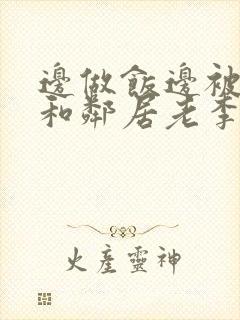 邊做飯邊被
和鄰居老李
火產靈神